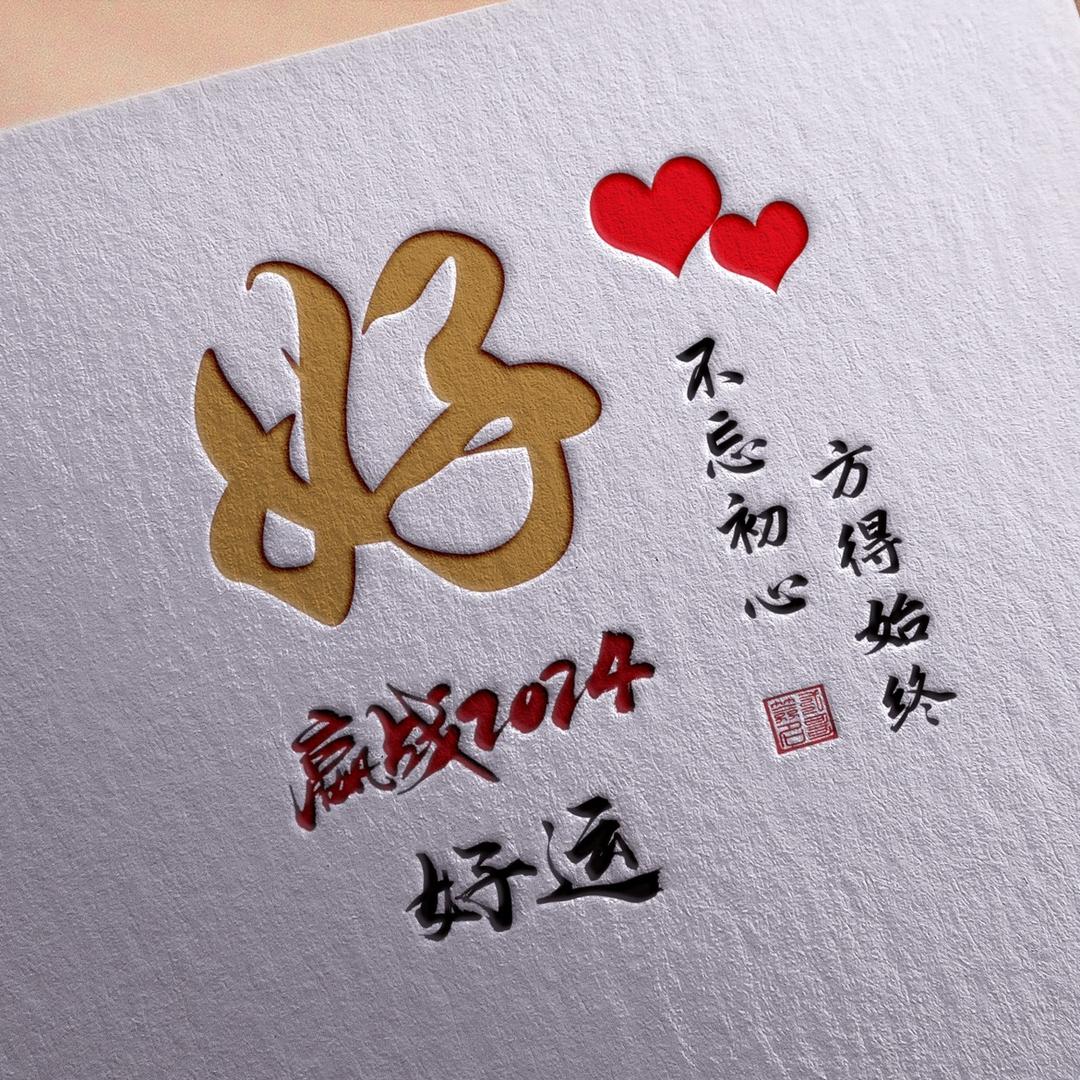 好
不忘初心
方得始终
赢战2024
好运